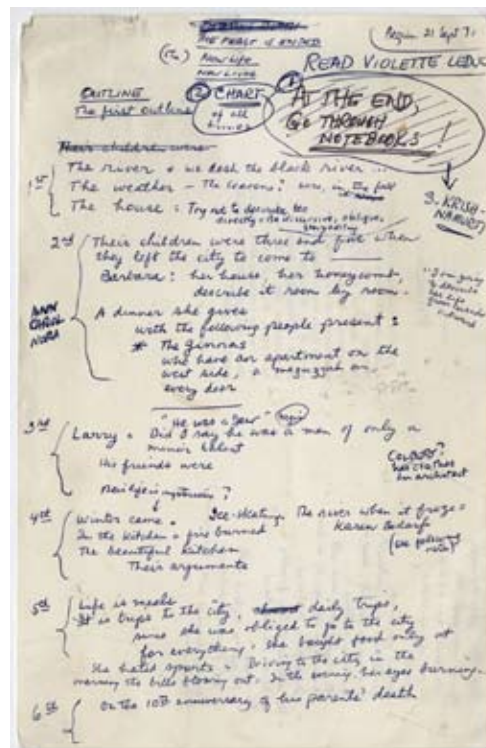 THE FEAST IS ENDED
Begin 21 Sept 71
(Or)
NEW LIFE
NEW LIVES
READ VIOLETTE LEDUC
OUTLINE
The first outline
② CHART
of all
times
① AT THE END,
GO THROUGH
NOTEBOOKS!
Their children were
1st
The river. We dash the black river ...
The weather – The seasons: in the fall
The house: Try not to describe too
directly – be discursive, oblique,
3. KRISH-
NAMURTI
2nd
Their children were three and five when
they left the city to come to
Barbara: her house, her honeycomb,
describe it room by room.
I am going
to describe
her life
from
A dinner she gives
with the following people present:
* The Ginoras
who have an apartment on the
west side, a mezuzzah on
every door
ANN
CAROL
NORA
3rd
"He was a Jew"
Larry. Did I say he was a man of only a
minor talent
His friends were
his clothes
an architect
4th
Winter came. Ice-skating. The river when it froze.
In the kitchen a fire burned
Karen
The beautiful kitchen
(see following
note)
Their arguments
5th
Life is meals
It is trips to the city, daily trips,
since she was obliged to go to the city
for everything, she bought food only at
She hated sports. Driving to the city in the
morning the bills blowing out. In the evening her eyes burning.
6th
On the 10th anniversary of his parents' death